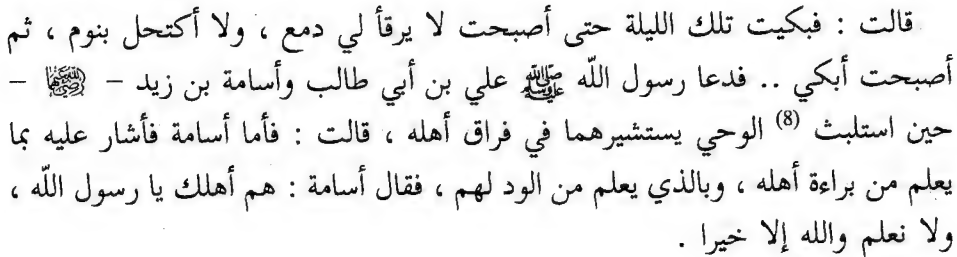 قالت : فبكيت تلك الليلة حتى أصبحت لا يرقأ لي دمع ، ولا أكتحل بنوم ، ثم
أصبحت أبكي .. فدعا رسول اللّه ﷺ علي بن أبي طالب وأسامة بن زيد – رضي الله عنهما –
حين استلبث (8) الوحي يستشيرهما في فراق أهله ، قالت : فأما أسامة فأشار عليه بما
يعلم من براءة أهله ، وبالذي يعلم من الود لهم ، فقال أسامة : هم أهلك يا رسول اللّه ،
ولا نعلم والله إلا خيرا .